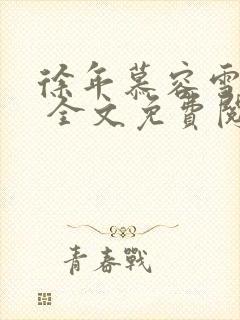 徐年慕容雪
全文免費閱
青春戰